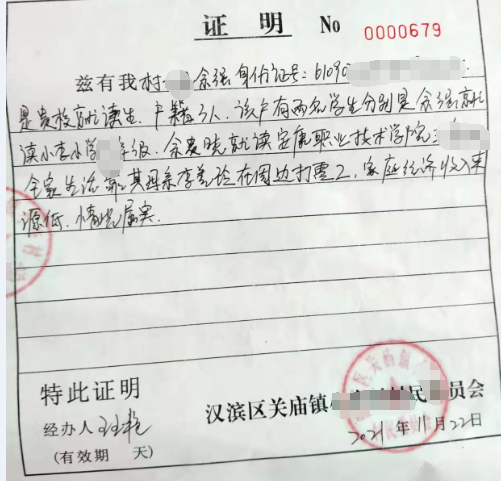 证 明 No 0000679
兹有我村 余强 身份证号:6109
是贵校就读生,户籍3人,该户有两名学生分别是余强就
读小李小学 年级、余贵晓就读安康职业技术学院
全家生活靠其母亲李 在周边打零工,家庭经济收入来
源低,情况属实.
特此证明
经办人
(有效期 天)
汉滨区关庙镇 村民委员会
2021年11月22日